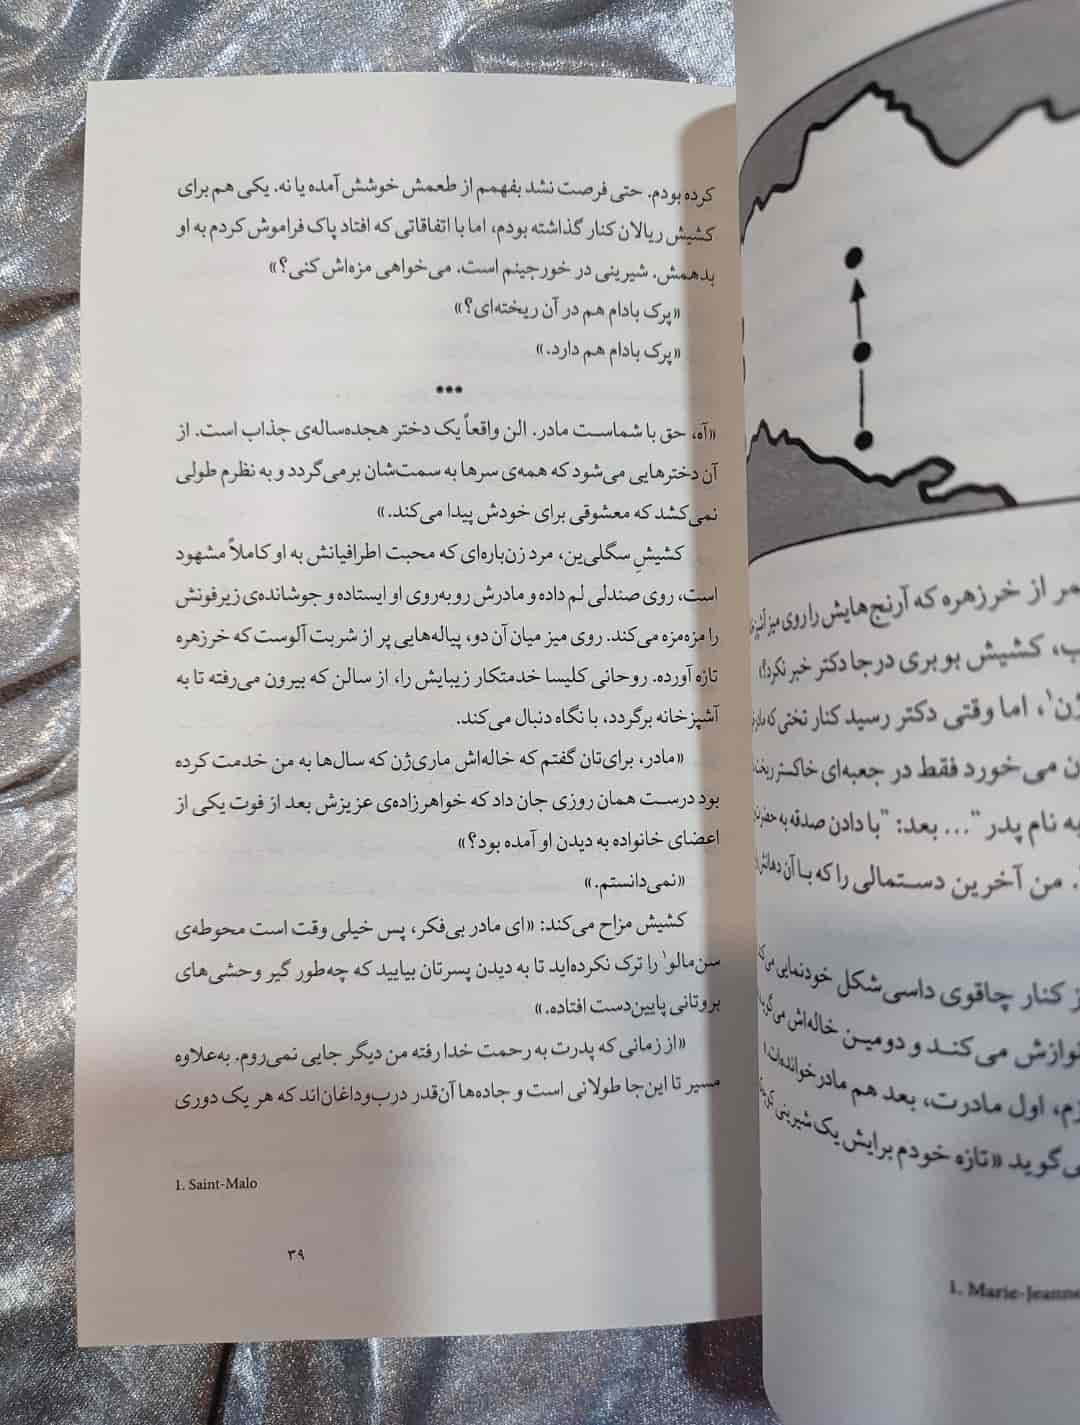 کرده بودم. حتی فرصت نشد بفهمم از طعمش خوشش آمده یا نه. یکی هم برای
کشیش ریالان کنار گذاشته بودم، اما با اتفاقاتی که افتاد پاک فراموش کردم به او
بدهمش. شیرینی در خورجینم است. می‌خواهی مزه‌اش کنی؟»
«پرک بادام هم در آن ریخته‌ای؟»
«پرک بادام هم دارد.»
•••
«آه، حق با شماست مادر. الن واقعاً یک دختر هجده‌ساله‌ی جذاب است. از
آن دخترهایی می‌شود که همه‌ی سرها به سمت‌شان برمی‌گردد و به نظرم طولی
نمی‌کشد که معشوقی برای خودش پیدا می‌کند.»
کشیشِ سگلی‌ین، مرد زن‌باره‌ای که محبت اطرافیانش به او کاملاً مشهود
است، روی صندلی لم داده و مادرش روبه‌روی او ایستاده و جوشانده‌ی زیرفونش
را مزه‌مزه می‌کند. روی میز میان آن دو، پیاله‌هایی پر از شربت آلوست که خرزهره
تازه آورده. روحانی کلیسا خدمتکار زیبایش را، از سالن که بیرون می‌رفته تا به
آشپزخانه برگردد، با نگاه دنبال می‌کند.
«مادر، برای‌تان گفتم که خاله‌اش ماری‌ژن که سال‌ها به من خدمت کرده
بود درست همان روزی جان داد که خواهرزاده‌ی عزیزش بعد از فوت یکی از
اعضای خانواده به دیدن او آمده بود؟»
«نمی‌دانستم.»
کشیش مزاح می‌کند: «ای مادر بی‌فکر، پس خیلی وقت است محوطه‌ی
سن‌مالو۱ را ترک نکرده‌اید تا به دیدن پسرتان بیایید که چه‌طور گیر وحشی‌های
بروتانی پایین‌دست افتاده.»
«از زمانی که پدرت به رحمت خدا رفته من دیگر جایی نمی‌روم. به‌علاوه
مسیر تا این‌جا طولانی است و جاده‌ها آن‌قدر درب‌وداغان‌اند که هر یک دوری
1. Saint-Malo
۳۹
از خرزهره که آرنج‌هایش را روی میز
کشیش بوبری درجا دکتر خبر نکرد؟»
اما وقتی دکتر رسید کنار تختی که
می‌خورد فقط در جعبه‌ای خاکستر
به نام پدر "... بعد: "با دادن صدقه به
من آخرین دستمالی را که با آن دهانش
کنار چاقوی داسی‌شکل خودنمایی
می‌کند و دومین خاله‌اش
اول مادرت، بعد هم مادرخوانده‌ات
«تازه خودم برایش یک شیرینی
1. Marie-Jeanne